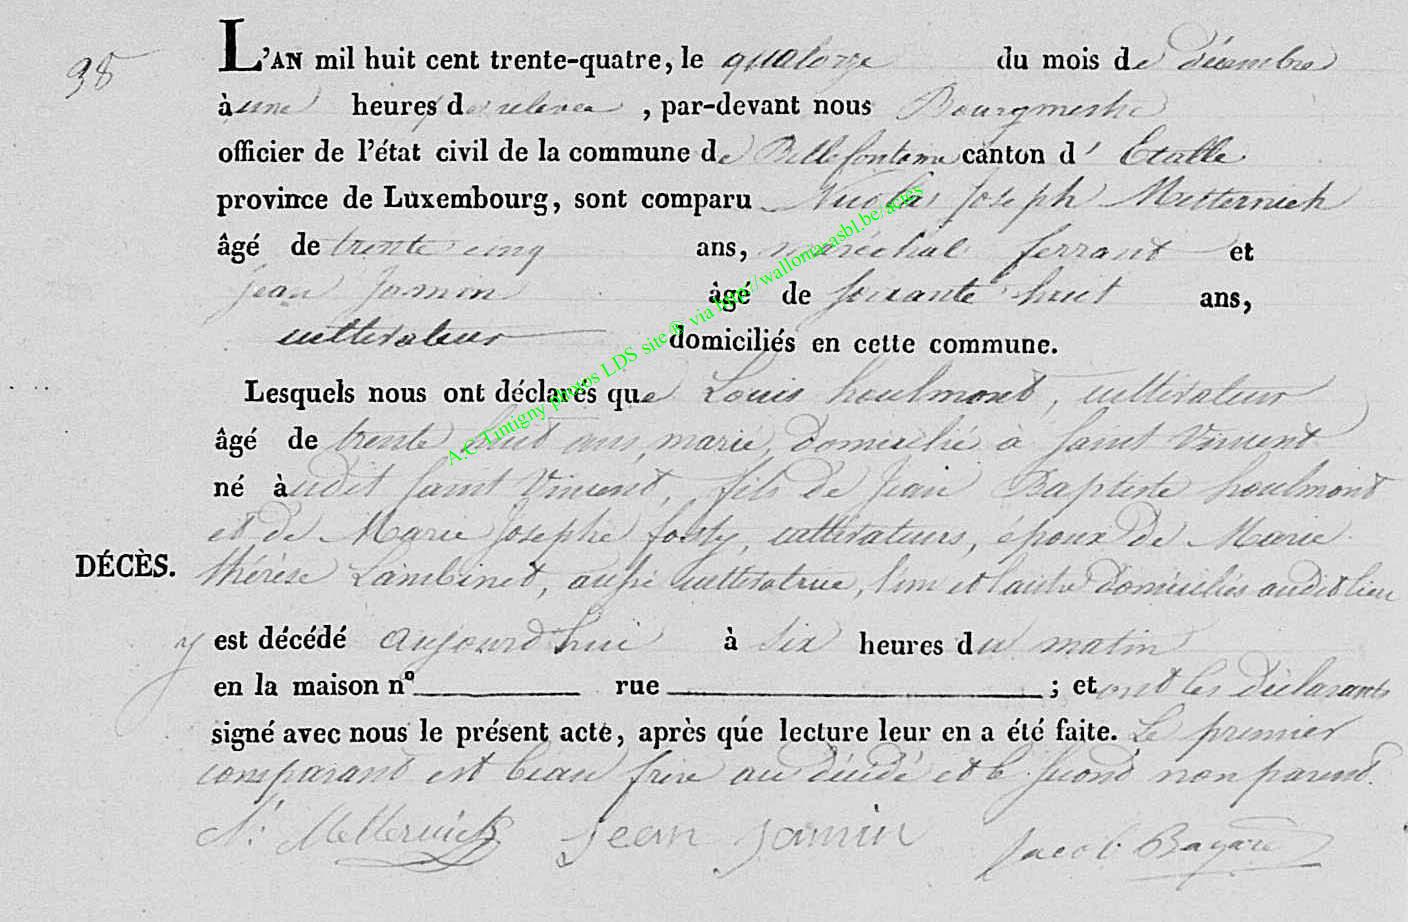 38
L'AN mil huit cent trente-quatre, le quatorze du mois de décembre
à une heures de relevée, par-devant nous Bourgmestre
officier de l'état civil de la commune de Bellefontaine canton d' Etalle
province de Luxembourg, sont comparu Nicolas Joseph Metternich
âgé de trente cinq ans, maréchal ferrant et
Jean Jamin âgé de soixante huit ans,
cultivateur domiciliés en cette commune.
Lesquels nous ont déclarés que Louis houlmont, cultivateur
âgé de trente huit ans, marié, domicilié à Saint Vincent
né audit Saint Vincent, fils de Jean Baptiste houlmont
et de Marie Josephe fosty, cultivateurs, époux de Marie
DÉCÈS. thérèse Lambinet, aussi cultivatrice, l'un et l'autre domiciliés audit lieu
y est décédé aujourd'hui à six heures du matin
en la maison nº rue ; et ont les déclarants
signé avec nous le présent acte, après que lecture leur en a été faite. Le premier
comparant est beau frère au décédé et le second non parent.
N. J. Metternich Jean Jamin Jacob Bayard
A.C Tintigny photos LDS site ® via http://wallonia-asbl.be/actes